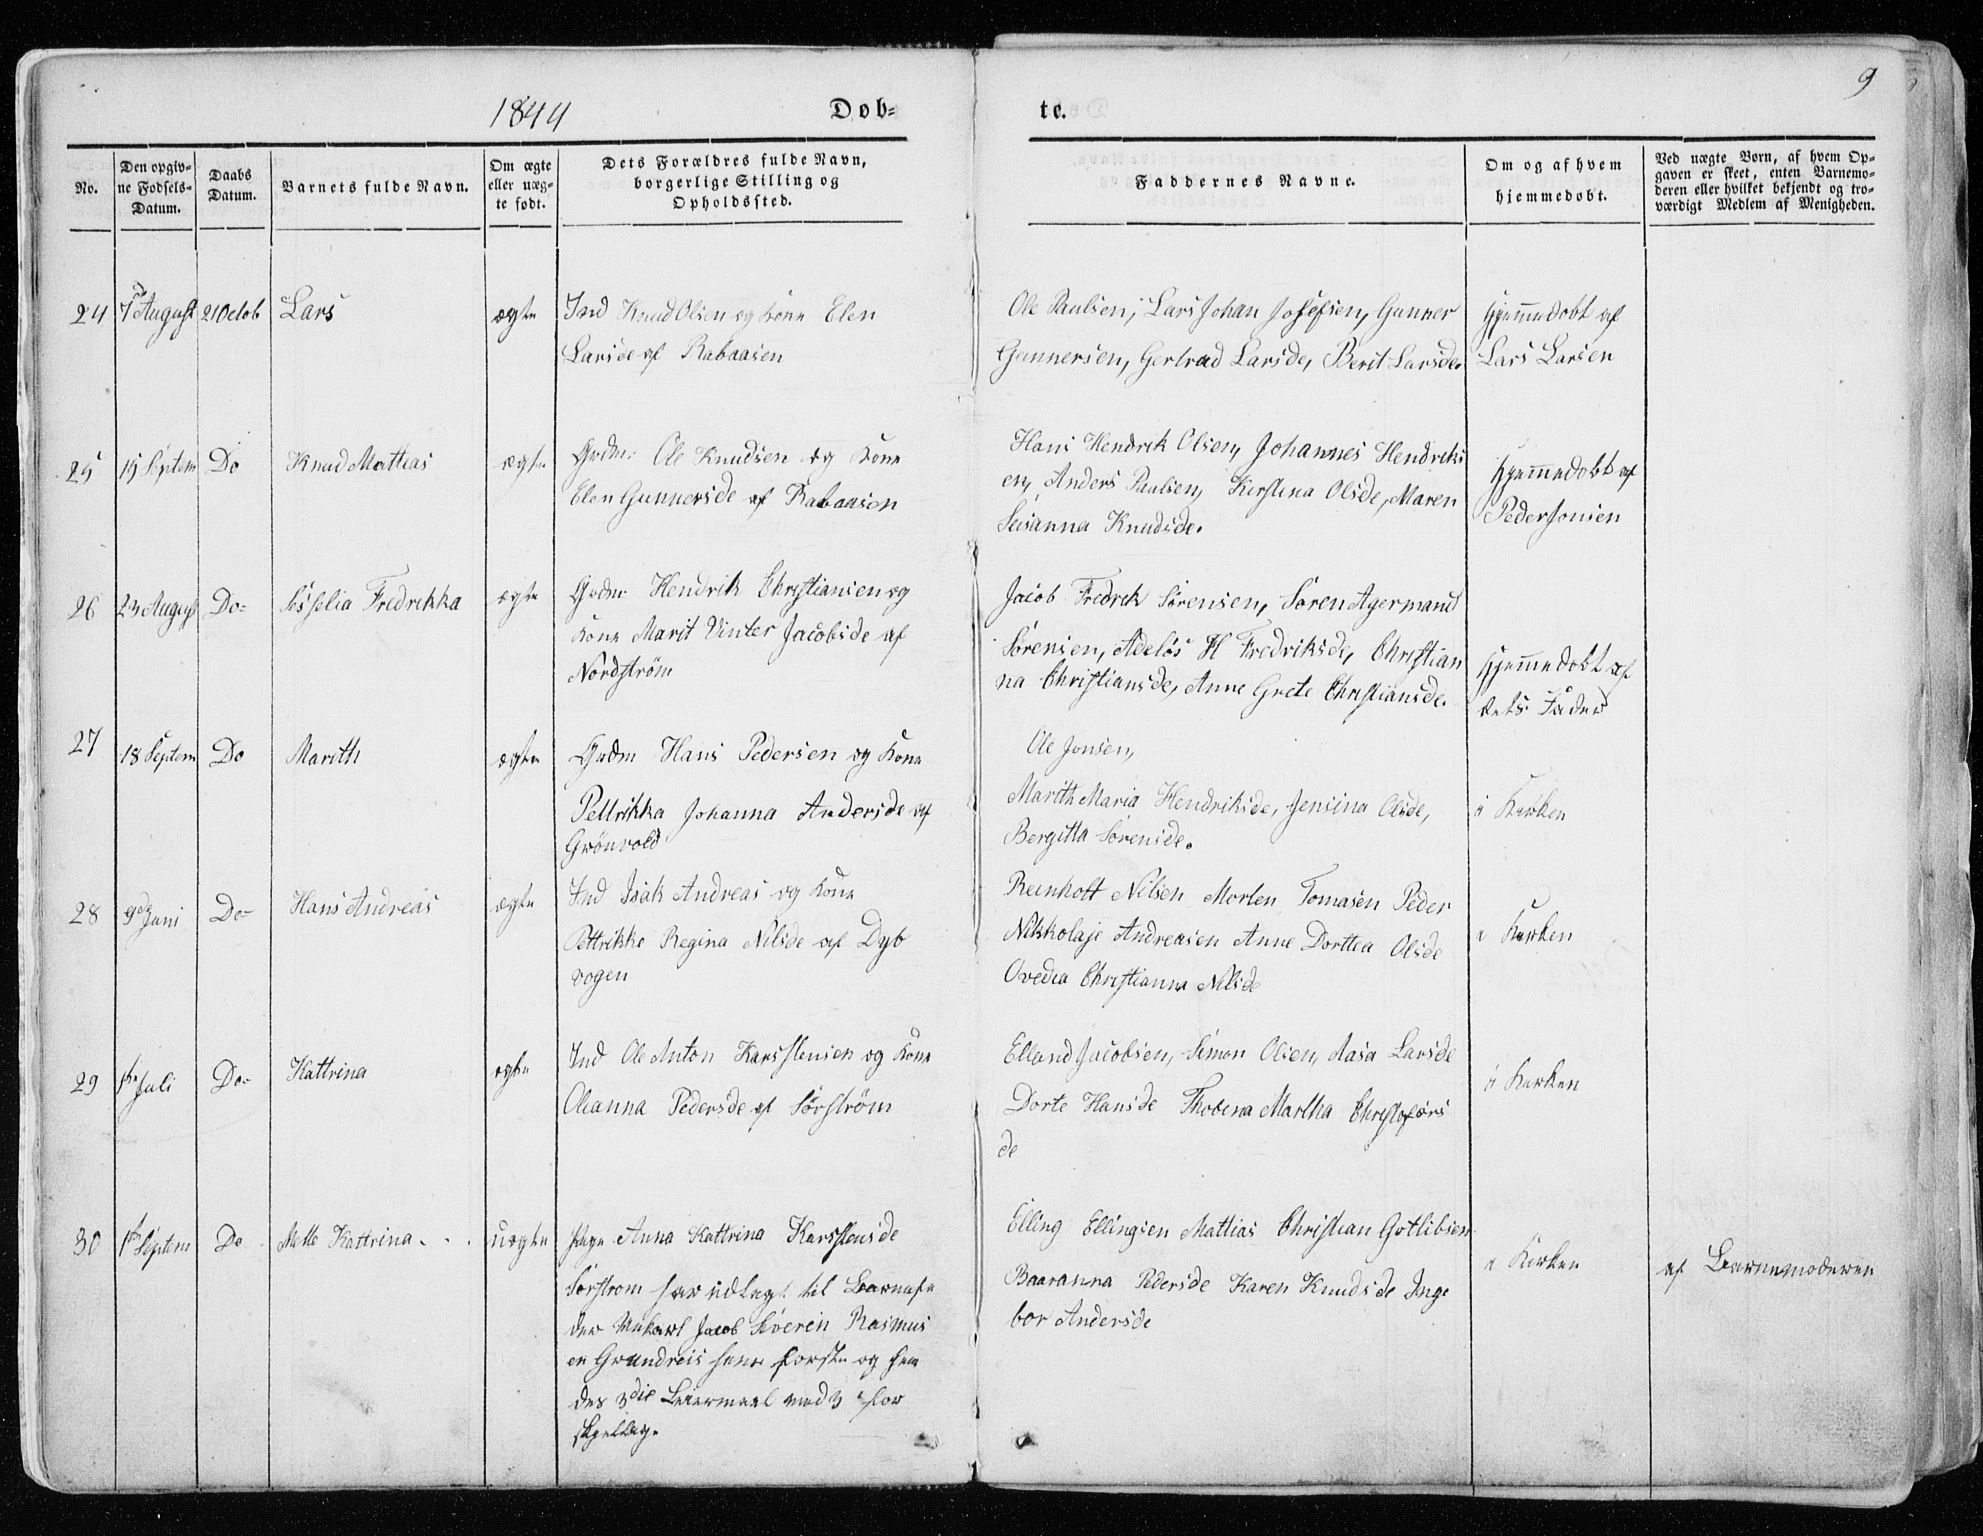 1844
Døb=
te.
9
No.
Den opgiv=
ne Fødsels=
Datum.
Daabs
Datum.
Barnets fulde Navn.
Om ægte
eller uæg=
te født.
Dets Forældres fulde Navn,
borgerlige Stilling og
Opholdssted.
Faddernes Navne.
Om og af hvem
hjemmedøbt.
Ved uægte Børn, af hvem Op=
gaven er skeet, enten Barnemo=
deren eller hvilket bekjendt og tro=
værdigt Medlem af Menigheden.
24 7de August 21 Octob Lars ægte Ind Knud Olsen og Kone Elen
Larsde af Rabaasen
Ole Paulsen, Lars Johan Josefsen, Gunner
Gunnersen, Gertrud Larsde, Berit Larsde.
hjemmedøbt af
Lars Larsen
25 15 Septem Do Knud Mattias ægte Grdm: Ole Knudsen og Kone
Elen Gunnersde af Rabaasen
Hans Hendrik Olsen, Johannes Hendriks
en, Anders Paulsen, Kirstina Olsde, Maren
Susanna Knudsde.
hjemmedøbt af
Peder Jonsen
26 23 August Do= Sisselia Fredrikka ægte Grdm: Hendrik Christiansen og
Kone Marit Vinter Jacobsde af
Nordstrøm
Jacob Fredrik Sørensen, Søren Agermand
Sørensen, Adelós H Fredriksde, Christian
na Christiansde, Anne Grete Christiansde.
hjemmedøbt af
dets Fader
27 18 Septem Do Marith ægte Grdm Hans Pedersen og Kone
Pettrikka Johanna Andersde af
Grönvold
Ole Jonsen,
Marith Maria Hendriksde, Jensina Olsde,
Bergitta Sørensde.
i Kirken
28 9de Juni Do= Hans Andreas ægte Ind Isak Andreas og Kone
Pettrikke Regina Nilsde af Dyb
vogen
Reinholt Nilsen Morten Tomasen Peder
Nikkolaje Andreasen Anne Dorttea Olsde
Ovedia Christianna Nilsde
i Kirken
29 1ste Juli Do= Kattrina ægte Ind Ole Anton Karsstensen og Kone
Olianna Pedersde af Sørstrøm
Elland Jacobsen, Simon Olsen, Aasa Larsde
Dorte Hansde Thobera Martha Christofors
de
i Kirken
30 1ste Septem Do Mette Kattrina uægte Pige Anna Kattrina Karsstensde
Sørstrøm har udlagt til Barnefa
der Unkarl Jacob Siverin Rasmus
en Grundreis hans første og hen
des 3die Leiermaal med 3 for
skjellig.
Elling Ellingsen Mattias Christian Gotlibsen
Baaranna Pedersde Karen Knudsde Inge
bor Andersde
i Kirken
af Barnemoderen